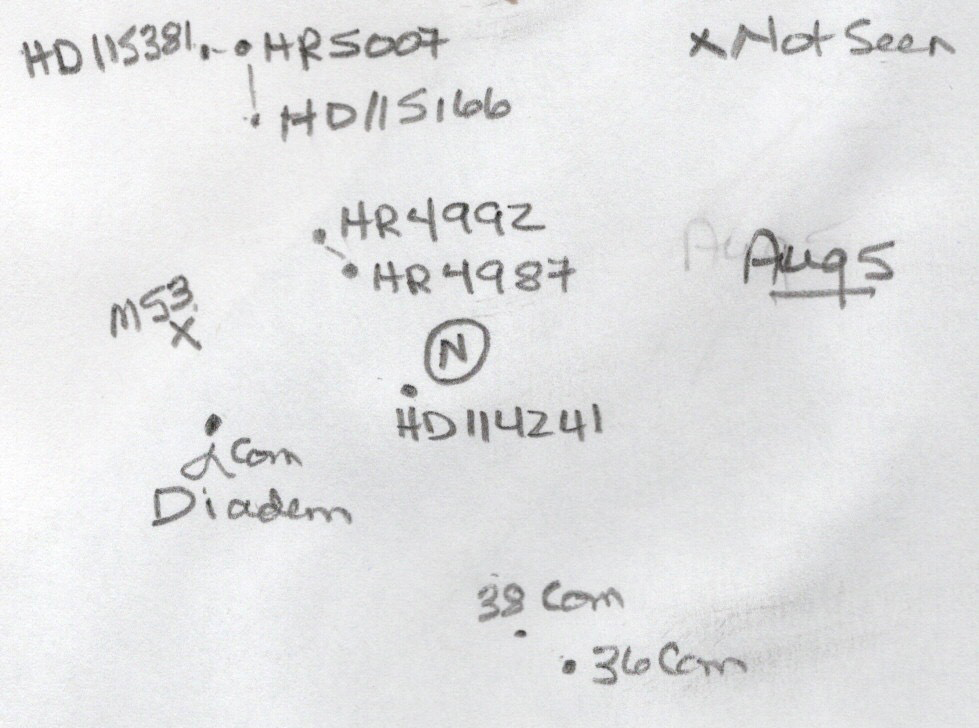 HD115381 HR5007
x Not Seen
HD115166
HR4992
HR4987
Aug 5
M53
X
N
HD114241
α Com
Diadem
38 Com
36 Com